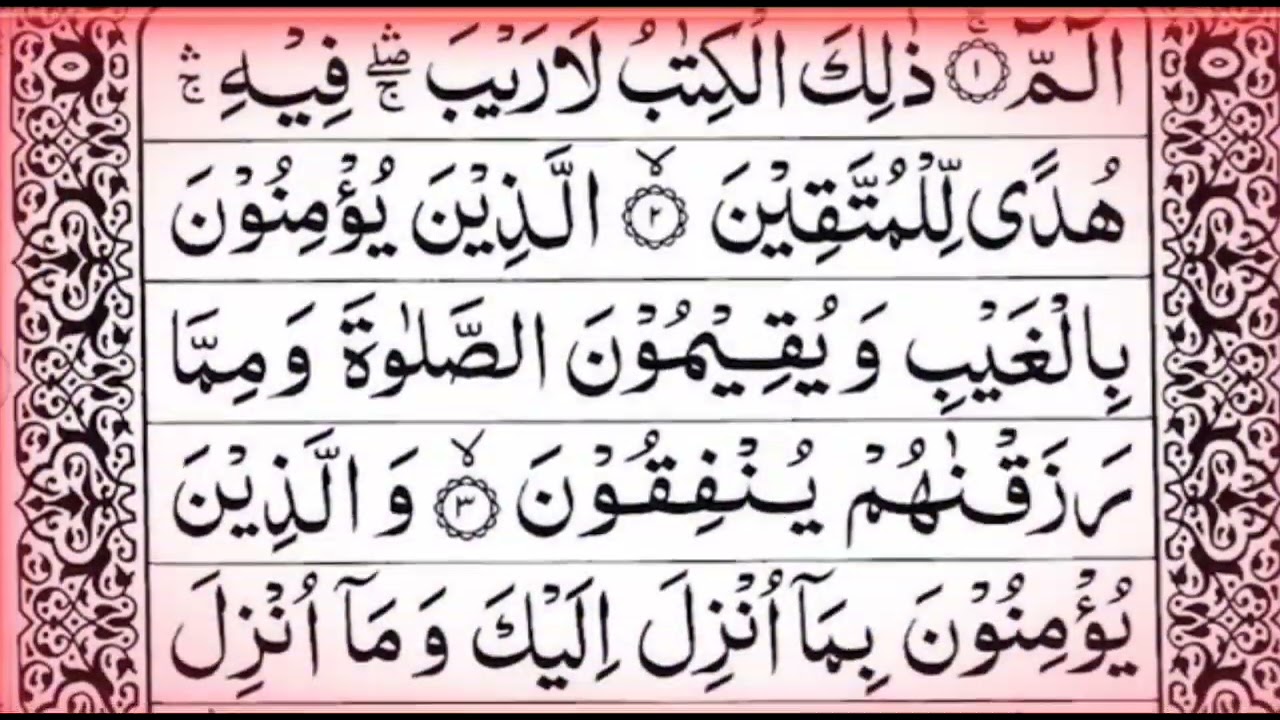 الٓمّٓ ۚ ۝۱ ذٰلِكَ الْكِتٰبُ لَا رَيْبَ ۛۖۚ فِيْهِ ۛۚ
هُدًى لِّلْمُتَّقِيْنَ ۙ۝۲ الَّذِيْنَ يُؤْمِنُوْنَ
بِالْغَيْبِ وَ يُقِيْمُوْنَ الصَّلٰوةَ وَ مِمَّا
رَزَقْنٰهُمْ يُنْفِقُوْنَ ۙ۝۳ وَ الَّذِيْنَ
يُؤْمِنُوْنَ بِمَاۤ اُنْزِلَ اِلَيْكَ وَ مَاۤ اُنْزِلَ